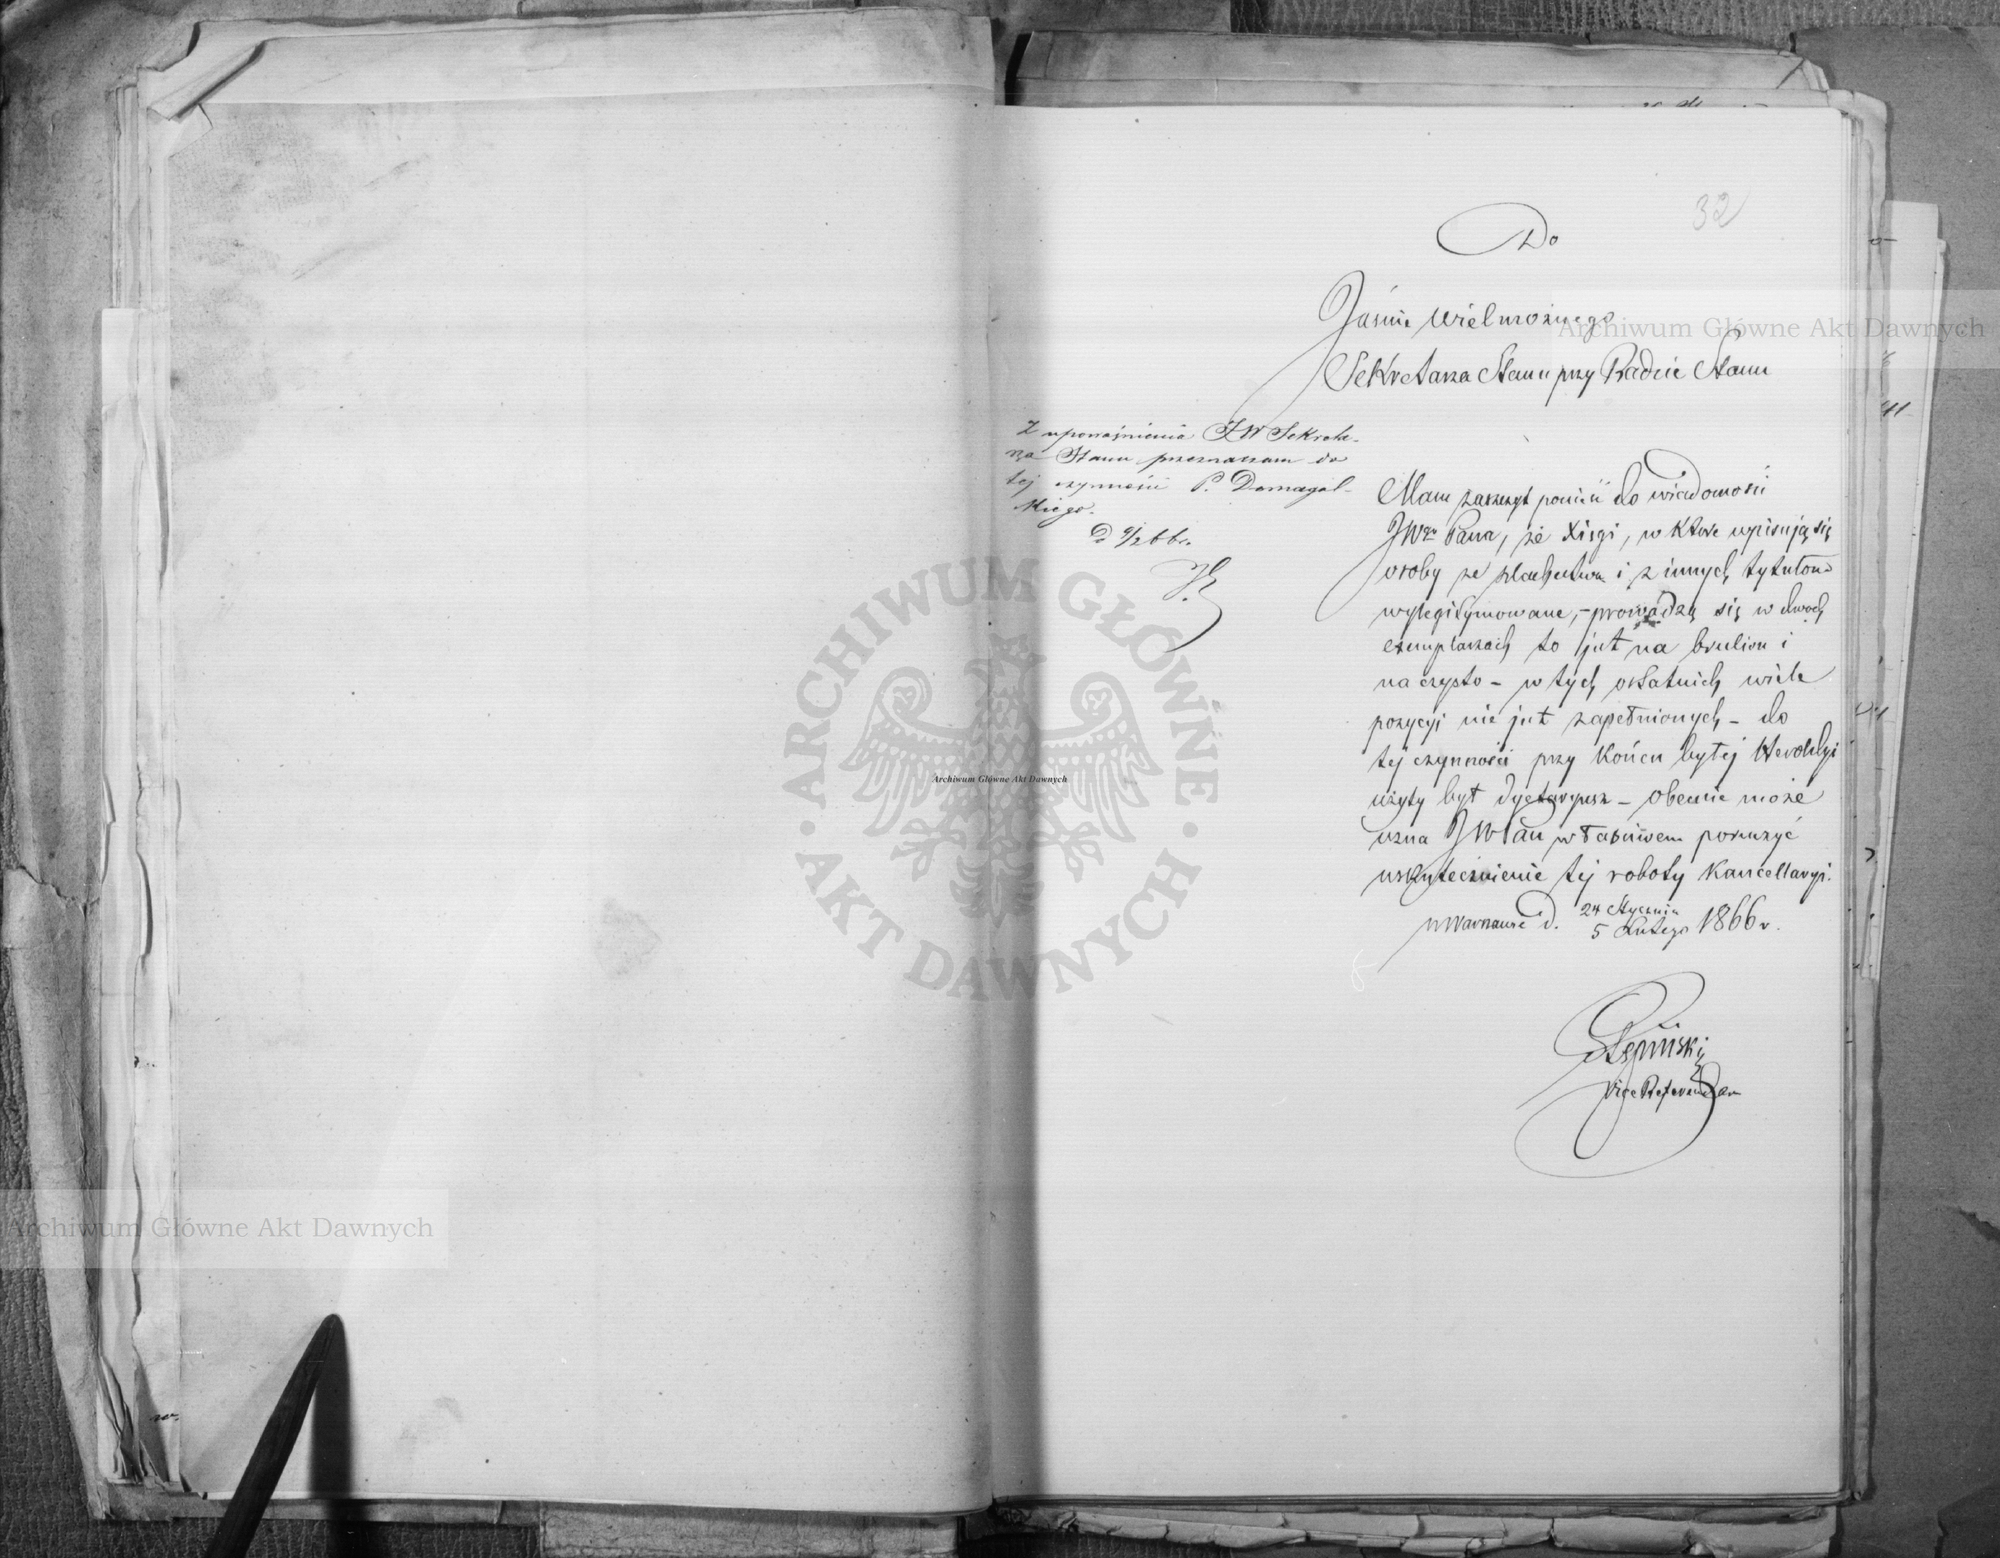 32
Do
Jaśnie Wielmożnego
Sekretarza Stanu przy Radzie Stanu
Z upoważnienia JW Sekreta-
rza Stanu przeznaczam do
tej czynności P. Domagal-
skiego.
D. 9/2 66 r.
Mam zaszczyt ponieść do wiadomości
JWgo Pana, że Xięgi, w które wpisują się
osoby ze szlachectwa i z innych tytułów
wylegitymowane, – prowadzą się w dwóch
exemplarzach to jest na brulion i
na czysto – w tych ostatnich wiele
pozycyi nie jest zapełnionych – do
tej czynności przy końcu byłej Heroldyi
użyty był Dyetaryusz – obecnie może
uzna JW Pan właściwem poruczyć
uskutecznienie tej roboty Kancellaryi.
w Warszawie d. 24 Stycznia
5 Lutego 1866 r.
Stępiński
Vice Referendarz
Archiwum Główne Akt Dawnych
Archiwum Główne Akt Dawnych
Archiwum Główne Akt Dawnych
ARCHIWUM GŁÓWNE
AKT DAWNYCH